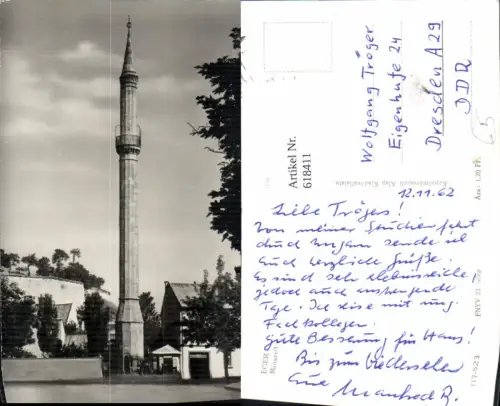 Wolfgang Tröger
Eigenhufe 24
Dresden A29
DDR
65
Artikel Nr.
618411
Képzőművészeti Alap Kiadóvállalata
Ára: 1,20 Ft
12.11.62
Liebe Trögers!
Von meiner Studienfahrt
durch Ungarn sende ich
Euch herzliche Grüße.
Es sind sehr erlebnisreiche,
jedoch auch anstrengende
Tage. Ich reise mit ung.
Fachkollegen.
gute Besserung für Hans!
Bis zum Wiedersehen
Eure Manfred R.
EGER
Minaret